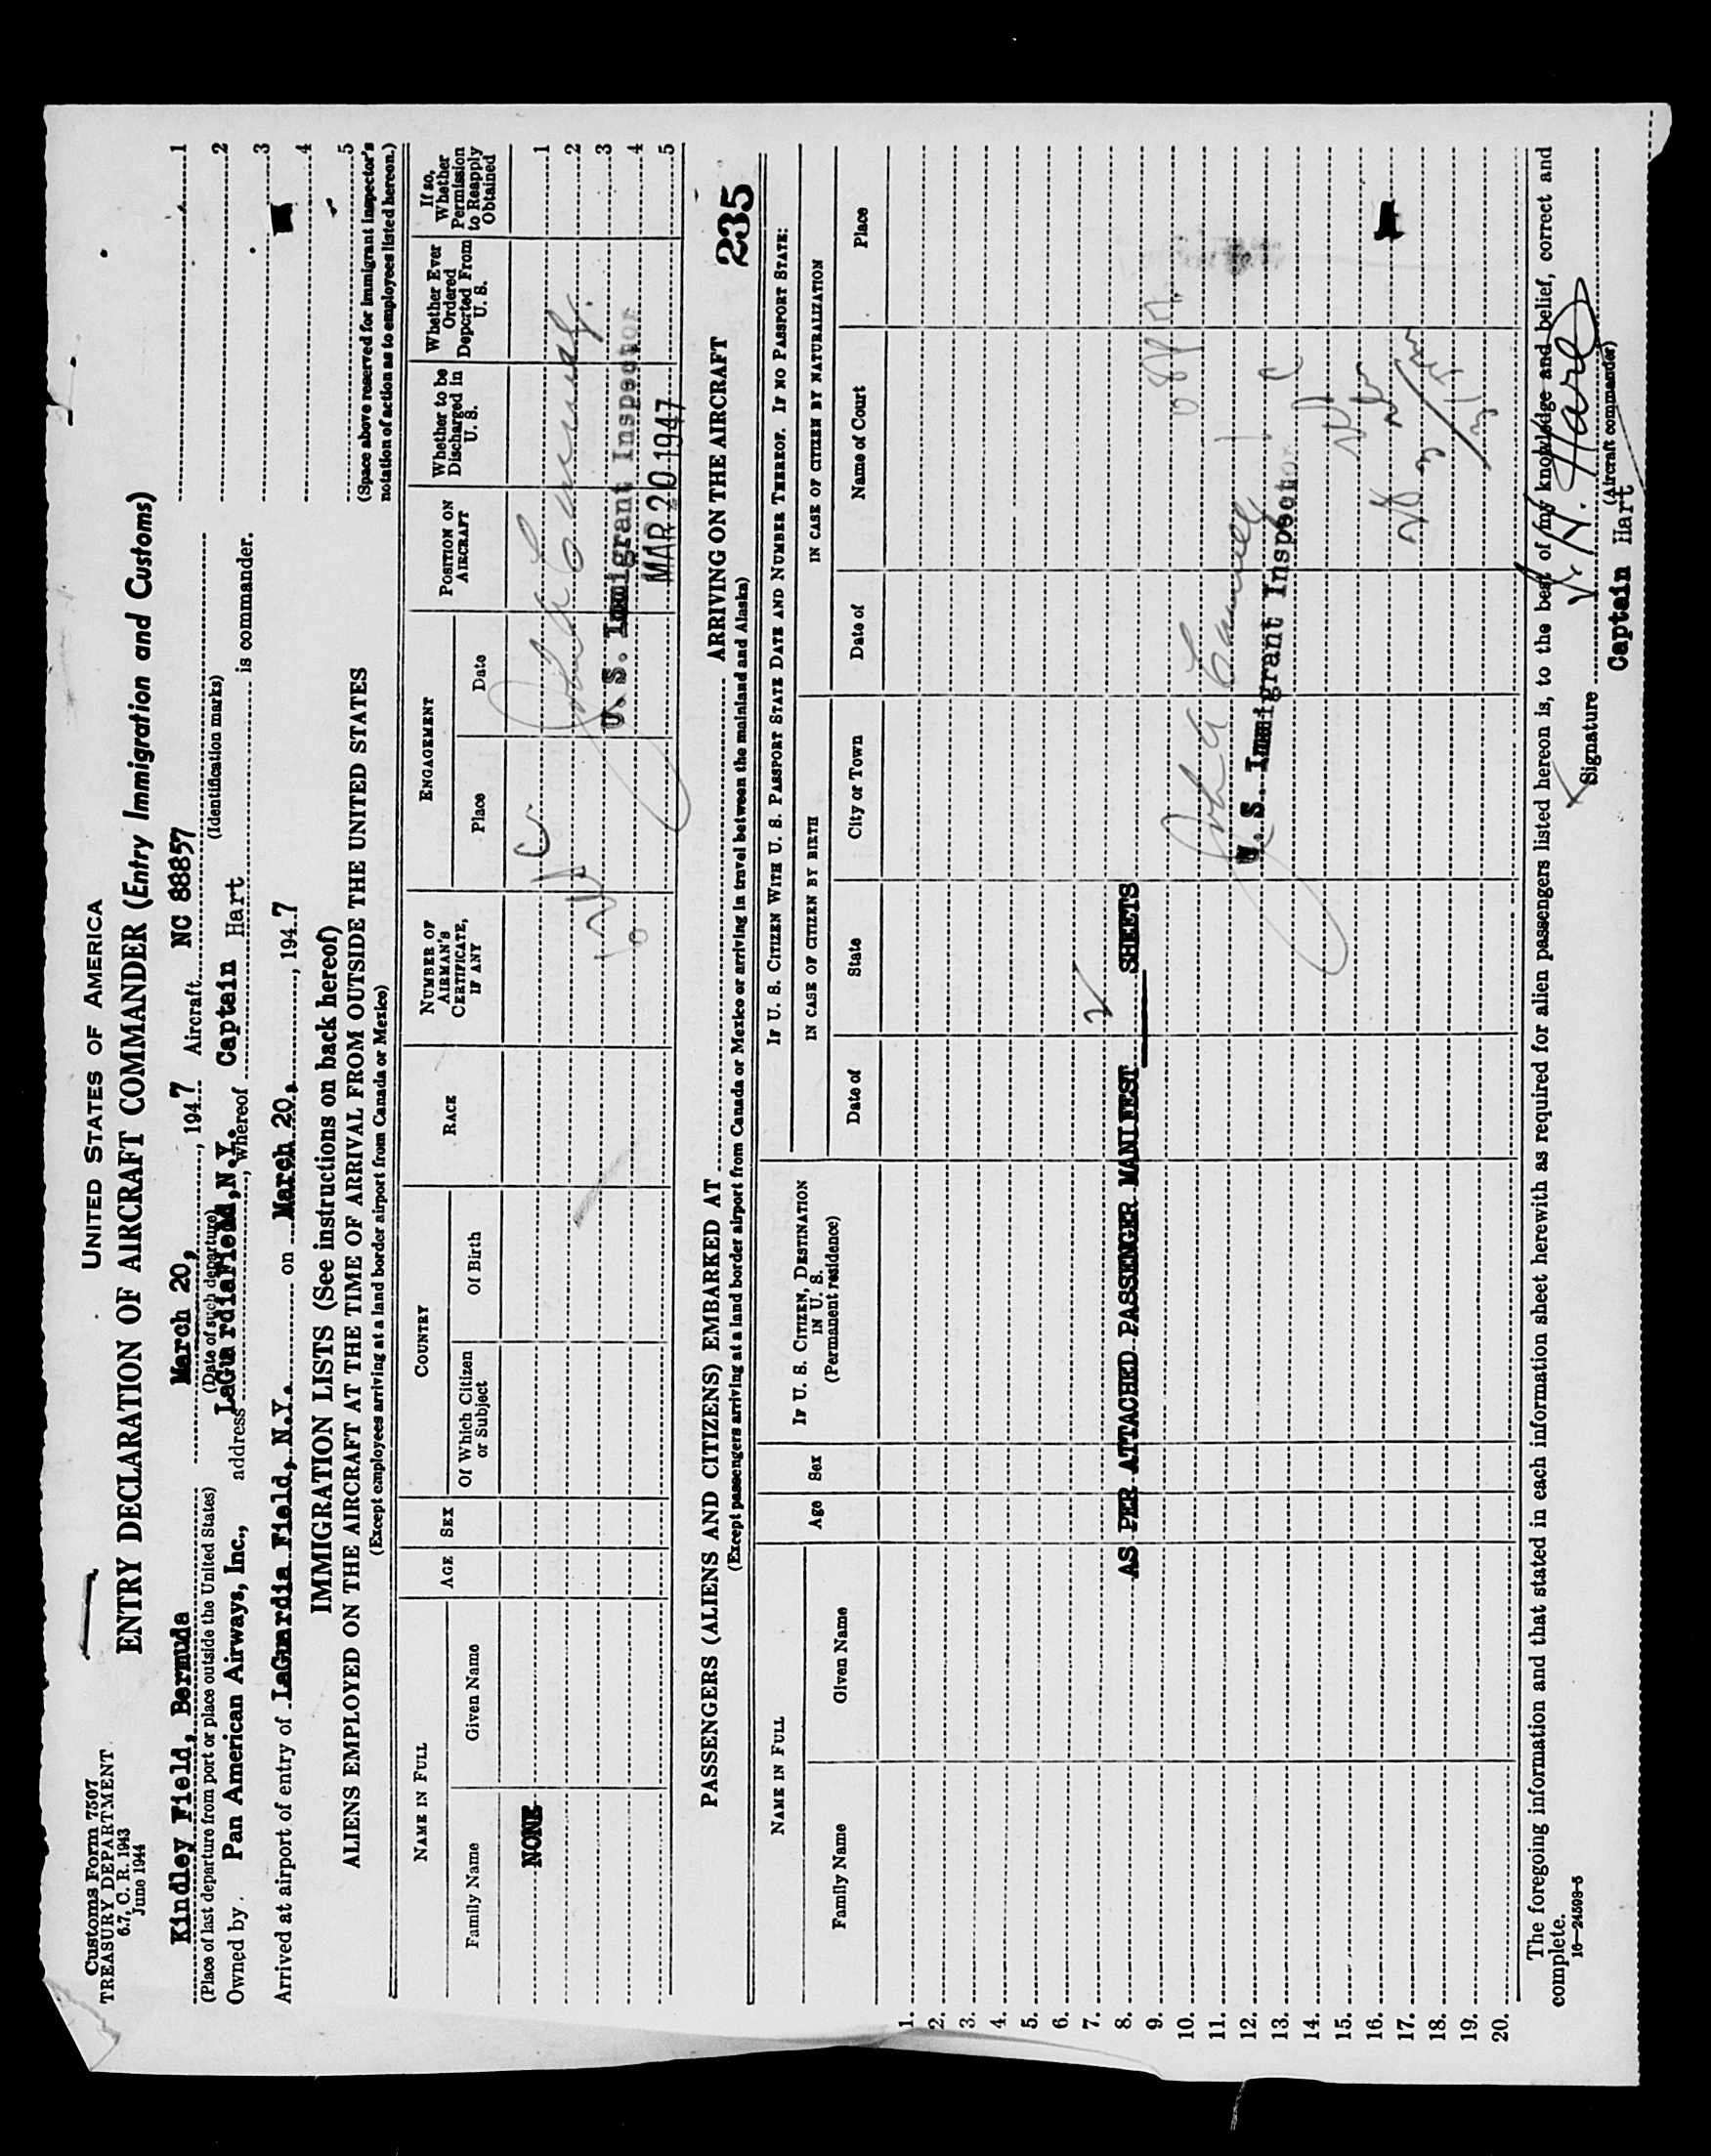 Customs Form 7507
TREASURY DEPARTMENT
6.7, C. R. 1943
June 1944
UNITED STATES OF AMERICA
ENTRY DECLARATION OF AIRCRAFT COMMANDER (Entry Immigration and Customs)
Kindley Field, Bermuda March 20, , 1947 Aircraft NC 88857
(Place of last departure from port or place outside the United States) (Date of such departure) (Identification marks)
Owned by Pan American Airways, Inc., address LaGuardiaField,N.Y. , whereof Captain Hart is commander.
Arrived at airport of entry of LaGuardia Field, N.Y. on March 20, , 1947
1
2
3
4
5
(Space above reserved for immigrant inspector's
notation of action as to employees listed hereon.)
IMMIGRATION LISTS (See instructions on back hereof)
ALIENS EMPLOYED ON THE AIRCRAFT AT THE TIME OF ARRIVAL FROM OUTSIDE THE UNITED STATES
(Except employees arriving at a land border airport from Canada or Mexico)
NAME IN FULL
Family Name
Given Name
AGE
SEX
COUNTRY
Of Which Citizen or Subject
Of Birth
RACE
NUMBER OF AIRMAN'S CERTIFICATE, IF ANY
ENGAGEMENT
Place
Date
POSITION ON AIRCRAFT
Whether to be Discharged in U. S.
Whether Ever Ordered Deported From U. S.
If so, Whether Permission to Reapply Obtained
NONE
1
2
3
4
5
U. S. Immigrant Inspector
MAR 20 1947
PASSENGERS (ALIENS AND CITIZENS) EMBARKED AT ARRIVING ON THE AIRCRAFT
235
(Except passengers arriving at a land border airport from Canada or Mexico or arriving in travel between the mainland and Alaska)
NAME IN FULL
Family Name
Given Name
Age
Sex
IF U. S. CITIZEN, DESTINATION IN U. S.
(Permanent residence)
IF U. S. CITIZEN WITH U. S. PASSPORT STATE DATE AND NUMBER THEREOF. IF NO PASSPORT STATE:
IN CASE OF CITIZEN BY BIRTH
IN CASE OF CITIZEN BY NATURALIZATION
Date of
State
City or Town
Date of
Name of Court
Place
1.
2.
3.
4.
5.
6.
7.
8. AS PER ATTACHED PASSENGER MANIFEST SHEETS
9.
10.
11.
12.
13.
14.
15.
16.
17.
18.
19.
20.
U. S. Immigrant Inspector
The foregoing information and that stated in each information sheet herewith as required for alien passengers listed hereon is, to the best of my knowledge and belief, correct and
complete.
16—24598-5
Signature
(Aircraft commander)
Captain Hart